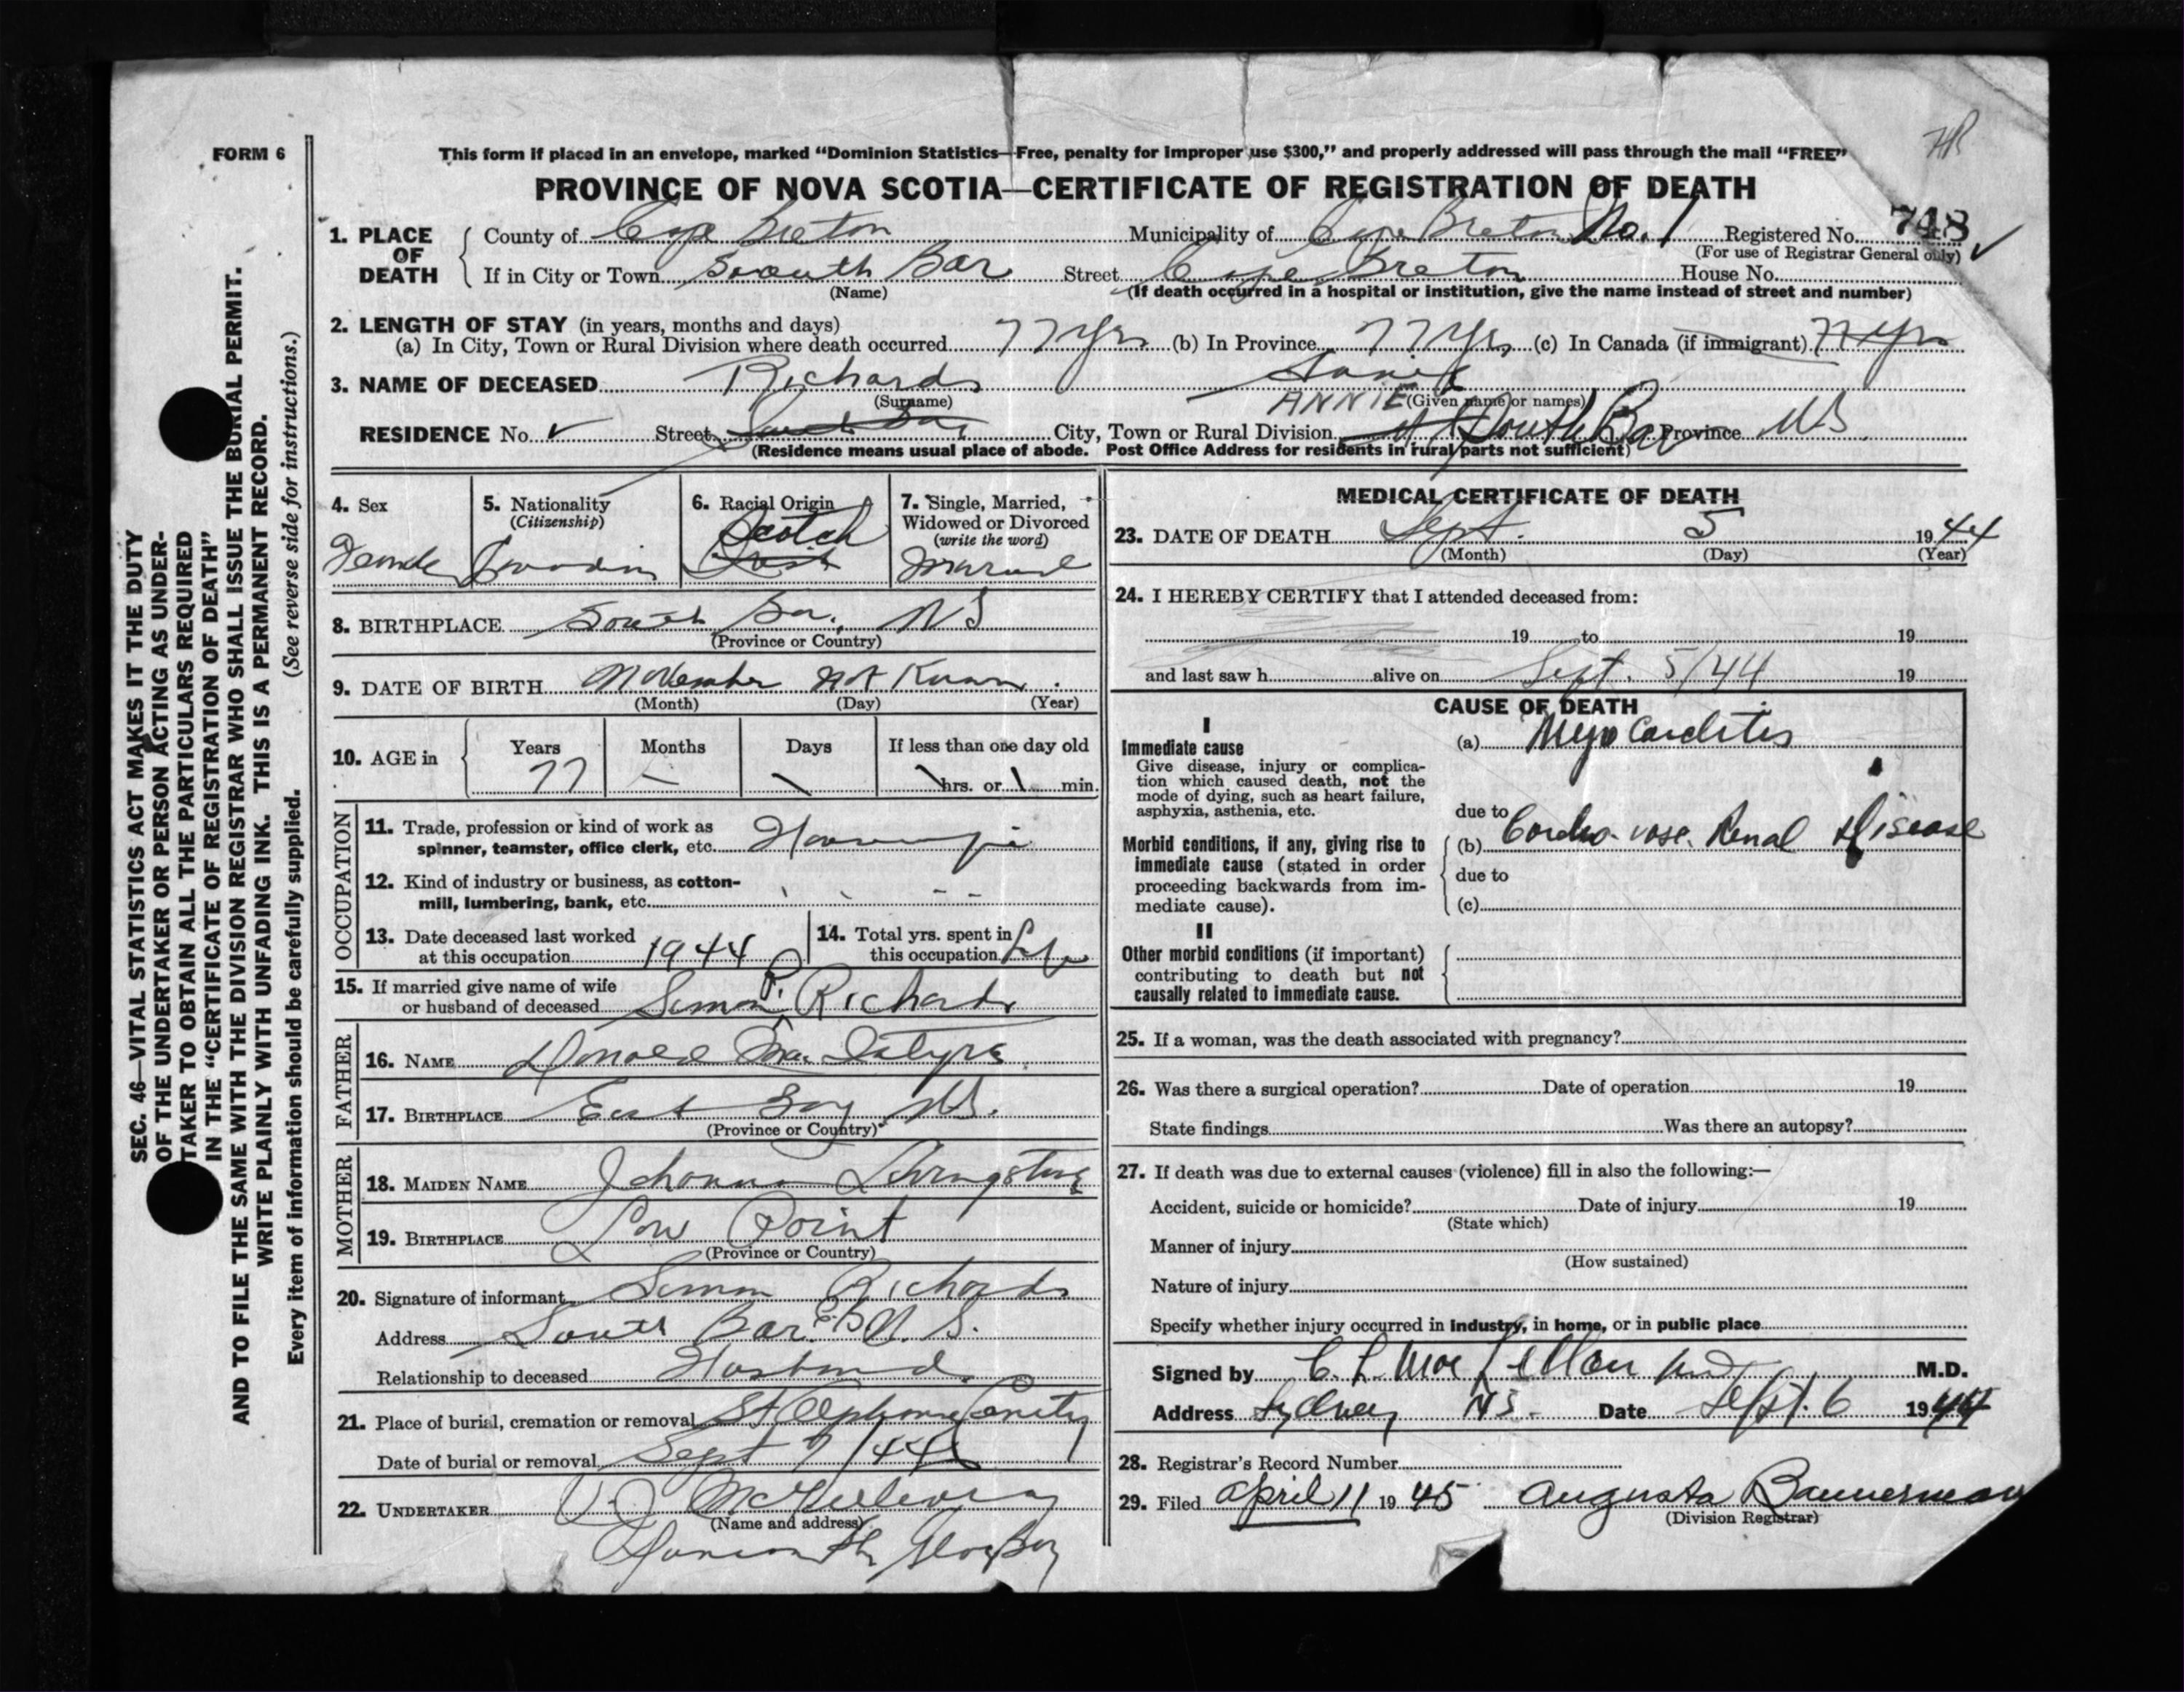 HR
FORM 6
This form if placed in an envelope, marked “Dominion Statistics—Free, penalty for improper use $300,” and properly addressed will pass through the mail “FREE”
PROVINCE OF NOVA SCOTIA—CERTIFICATE OF REGISTRATION OF DEATH
748 ✓
1. PLACE OF DEATH { County of Cape Breton Municipality of Cape Breton No. 1 Registered No.
(For use of Registrar General only)
If in City or Town South Bar Street Cape Breton House No.
(Name) (If death occurred in a hospital or institution, give the name instead of street and number)
2. LENGTH OF STAY (in years, months and days)
(a) In City, Town or Rural Division where death occurred 77 yrs (b) In Province 77 yrs (c) In Canada (if immigrant) 77 yrs
3. NAME OF DECEASED Richards Annie
(Surname) ANNIE (Given name or names)
RESIDENCE No. ✓ Street South Bar City, Town or Rural Division South Bar Province N.S.
(Residence means usual place of abode. Post Office Address for residents in rural parts not sufficient)
4. Sex
Female
5. Nationality
(Citizenship)
Canadian
6. Racial Origin
Scotch
Irish
7. Single, Married,
Widowed or Divorced
(write the word)
Married
8. BIRTHPLACE South Bar, N S
(Province or Country)
9. DATE OF BIRTH November not Known
(Month) (Day) (Year)
10. AGE in { Years Months Days If less than one day old
77 — \ \ hrs. or \ min.
OCCUPATION
11. Trade, profession or kind of work as
spinner, teamster, office clerk, etc. Housewife
12. Kind of industry or business, as cotton-
mill, lumbering, bank, etc.
13. Date deceased last worked
at this occupation 1944
14. Total yrs. spent in
this occupation Life
15. If married give name of wife
or husband of deceased Simon P. Richards
FATHER
16. NAME Donald MacIntyre
17. BIRTHPLACE East Bay N.S.
(Province or Country)
MOTHER
18. MAIDEN NAME Johanna Livingstone
19. BIRTHPLACE Low Point
(Province or Country)
20. Signature of informant Simon Richards
Address South Bar C.B N. S.
Relationship to deceased Husband
21. Place of burial, cremation or removal St Alphonse Cemetery
Date of burial or removal Sept 7/44
22. UNDERTAKER
(Name and address)
Glace Bay
MEDICAL CERTIFICATE OF DEATH
23. DATE OF DEATH Sept. 5 1944
(Month) (Day) (Year)
24. I HEREBY CERTIFY that I attended deceased from:
19 to 19
and last saw h alive on Sept. 5/44 19
CAUSE OF DEATH
I
Immediate cause
Give disease, injury or complica-
tion which caused death, not the
mode of dying, such as heart failure,
asphyxia, asthenia, etc.
(a) Myocarditis
due to
Morbid conditions, if any, giving rise to
immediate cause (stated in order
proceeding backwards from im-
mediate cause).
(b) Cardio-vasc. Renal Disease
due to
(c)
II
Other morbid conditions (if important)
contributing to death but not
causally related to immediate cause.
25. If a woman, was the death associated with pregnancy?
26. Was there a surgical operation? Date of operation 19
State findings Was there an autopsy?
27. If death was due to external causes (violence) fill in also the following:—
Accident, suicide or homicide? Date of injury 19
(State which)
Manner of injury
(How sustained)
Nature of injury
Specify whether injury occurred in industry, in home, or in public place
Signed by C. L. MacLellan md M.D.
Address Sydney NS. Date Sept. 6 1944
28. Registrar's Record Number
29. Filed April 11 1945 Augusta Bannerman
(Division Registrar)
SEC. 46—VITAL STATISTICS ACT MAKES IT THE DUTY
OF THE UNDERTAKER OR PERSON ACTING AS UNDER-
TAKER TO OBTAIN ALL THE PARTICULARS REQUIRED
IN THE “CERTIFICATE OF REGISTRATION OF DEATH”
AND TO FILE THE SAME WITH THE DIVISION REGISTRAR WHO SHALL ISSUE THE BURIAL PERMIT.
WRITE PLAINLY WITH UNFADING INK. THIS IS A PERMANENT RECORD.
Every item of information should be carefully supplied. (See reverse side for instructions.)